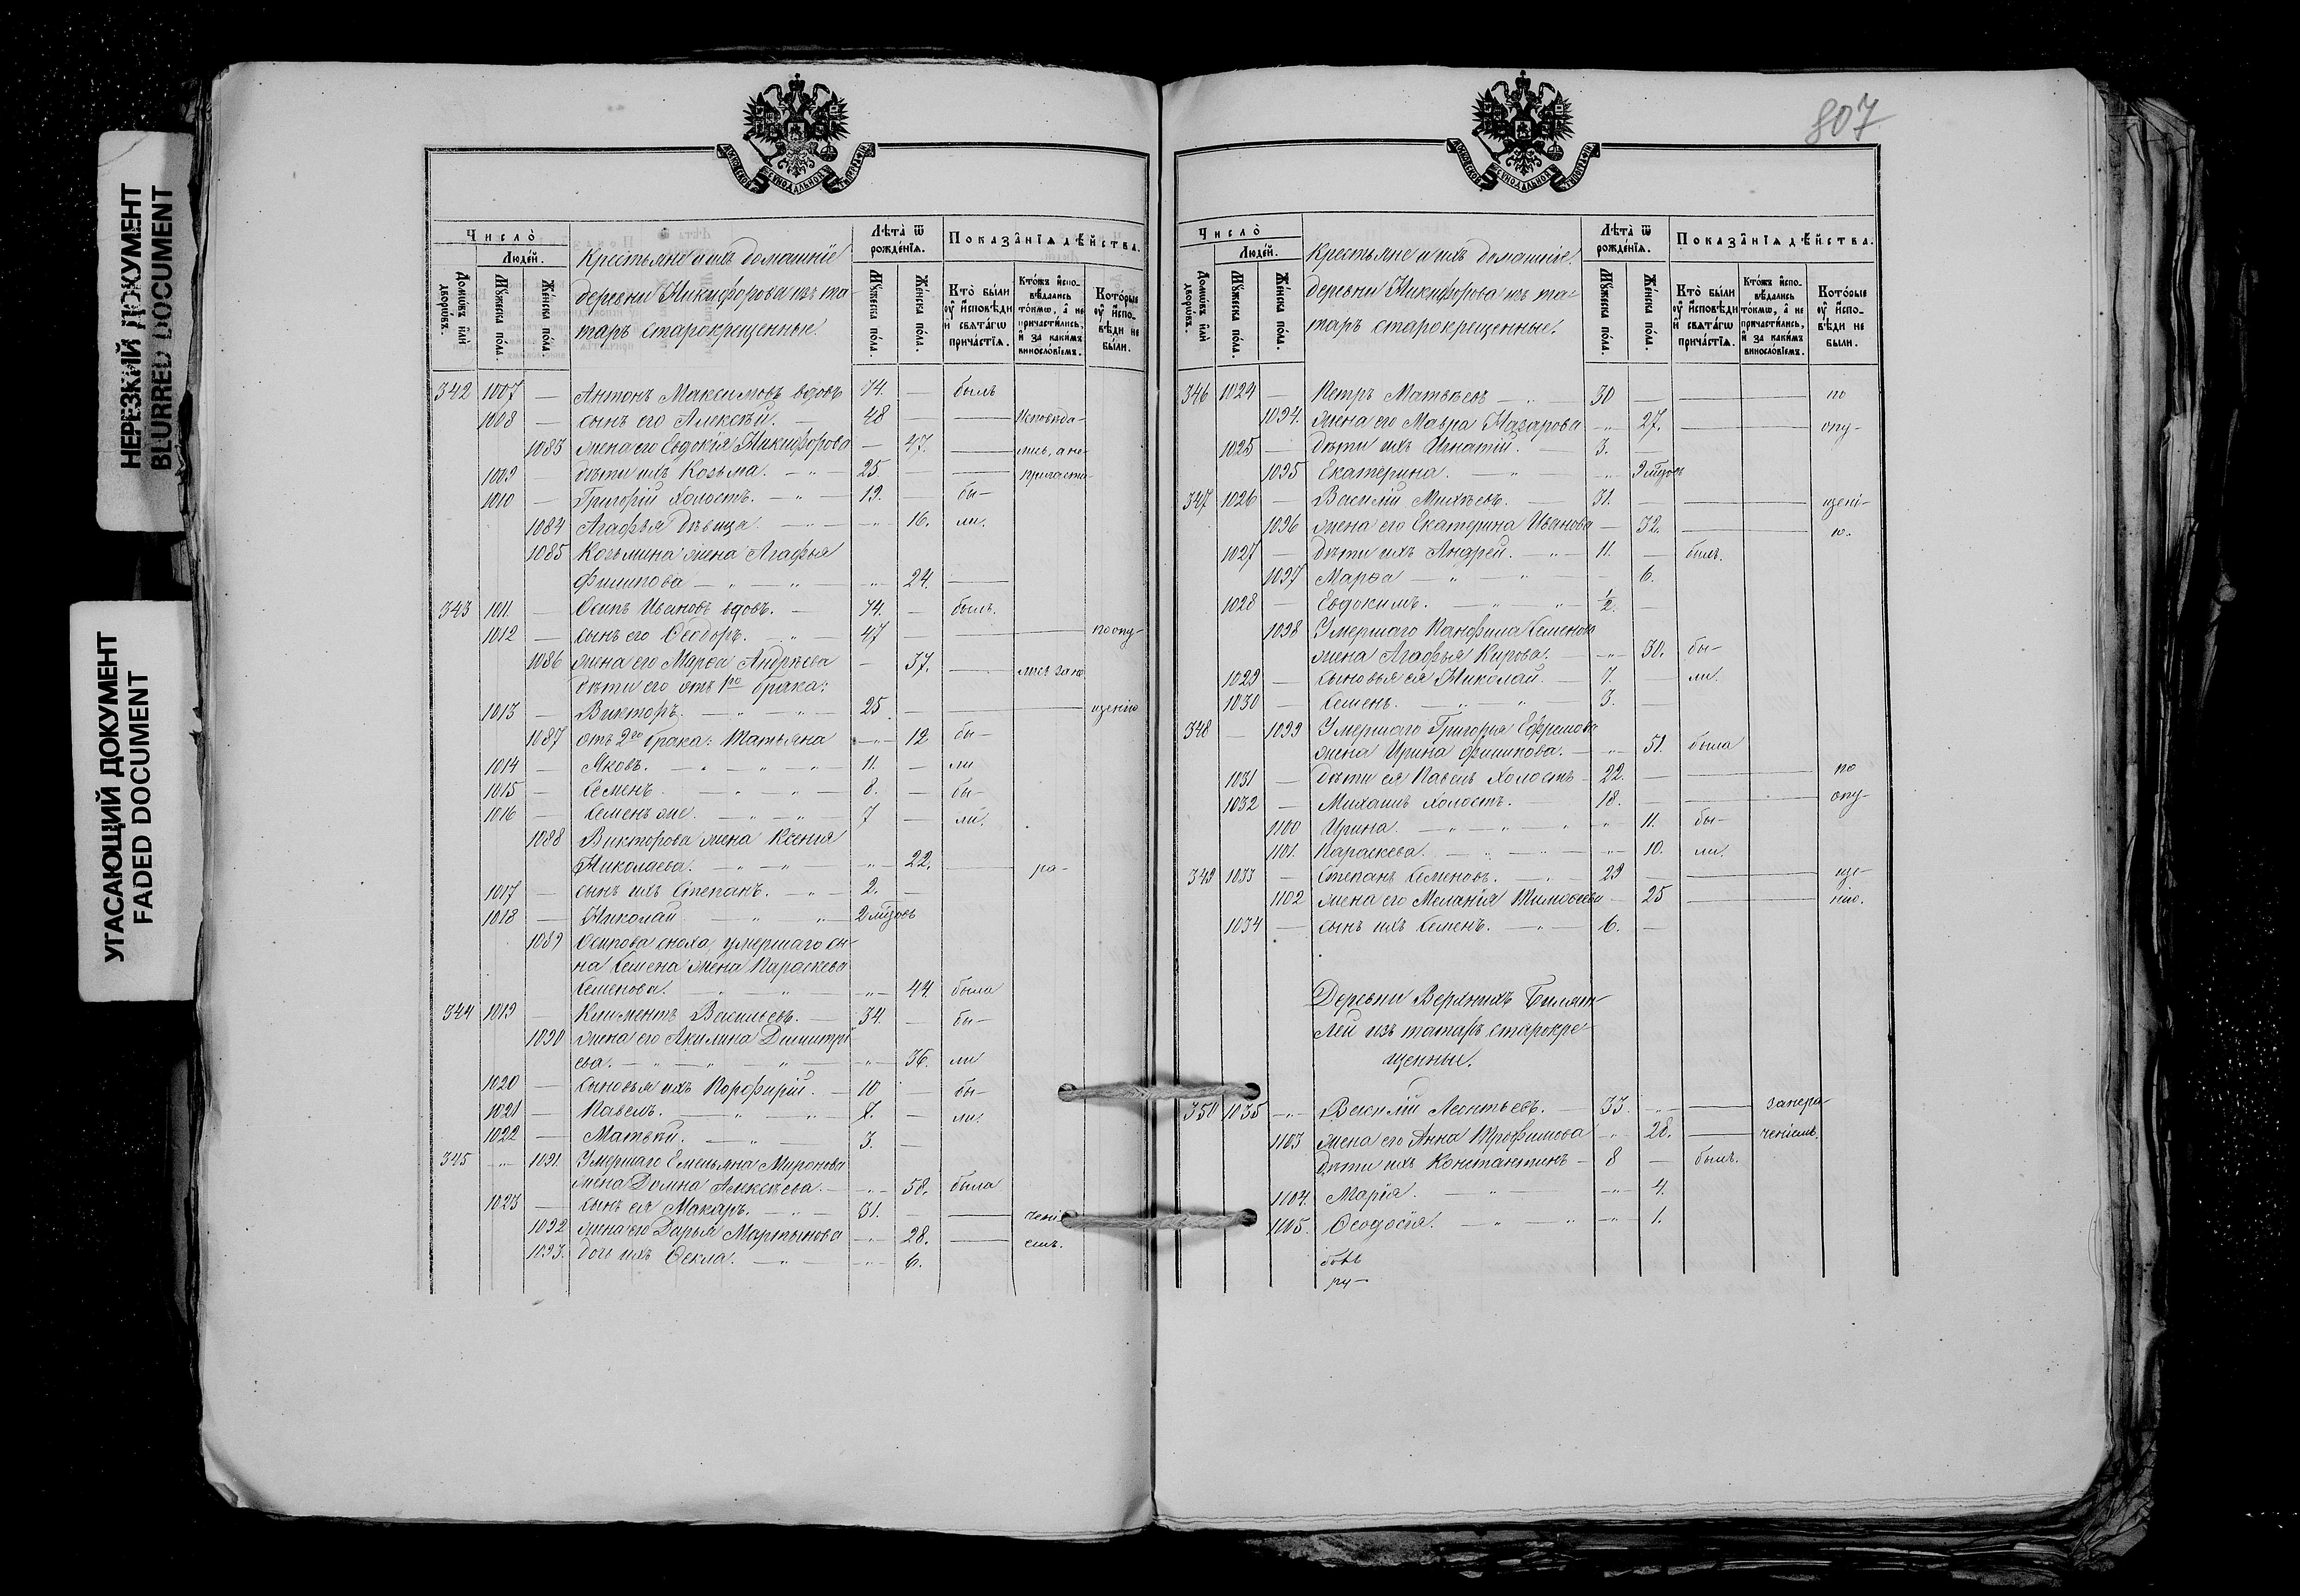 НЕРЕЗКИЙ ДОКУМЕНТ
BLURRED DOCUMENT
УГАСАЮЩИЙ ДОКУМЕНТ
FADED DOCUMENT
МОСКОВСКОЙ СУНОДАЛЬНОЙ ТИПОГРАФІИ
Число̀
Людéй.
Домѡ́въ и҆лѝ дворѡ́въ.
Мꙋ́жеска по́ла.
Же́нска по́ла.
Крестьяне и ихъ домашніе
деревни Никифорова изъ та-
таръ старокрещенные.
Лѣта̀ ѿ рожде́нїѧ.
Мꙋ́жеска по́ла.
Же́нска по́ла.
Показа̑нїѧ дѣ́йства.
Кто̀ бы́ли ᲂу҆ и҆сповѣди и҆ свѧта́гѡ прича́стїѧ.
Кто́жъ и҆спо-вѣ́дались то́кмѡ, а҆ не причасти́лись, и҆ за каки́мъ виносло́вїемъ.
Кото́рые ᲂу҆ и҆спо-вѣди не бы́ли.
342 1007 — Антонъ Максимовъ вдовъ 74. — былъ
1008 — сынъ его Алексѣй. — 48 — Исповѣда-
1083 жена его Евдокія Никифорова — 47. — лись, а не
1009 — дѣти ихъ Козьма. — 25 — причасти-
1010 — Григорій холостъ. — 19. — бы-
1084 Агафья дѣвица. — 16. ли.
1085 Козьмина жена Агафья
Филипова — 24. —
343 1011 — Осипъ Ивановъ вдовъ. — 74. — былъ.
1012 — сынъ его Ѳеодоръ. — 47 — по опу-
1086 жена его Марѳа Андреева — 37. — лись за но
дѣти его отъ 1го брака:
1013 — Викторъ. — 25. — щенію
1087 отъ 2го брака: Татьяна — 12 бы-
1014 — Яковъ. — 11. — ли
1015 — Семенъ. — 8. — бы-
1016 — Семенъ же. — 7 — ли.
1088 Викторова жена Ксенія
Николаева. — 22. — ра-
1017 — сынъ ихъ Степанъ. — 2. —
1018 — Николай — 2 мѣсяцовъ
1089 Осипова сноха умершаго сы-
на Семена жена Параскева
Семенова. — 44. была
344 1019 — Климентъ Васильевъ. — 34. — бы-
1090 жена его Акилина Димитрі
ева. — 36. ли
1020 — сыновья ихъ Порфирій. — 10 бы-
1021 — Павелъ. — 7. — ли.
1022 — Матвѣй. — 3. —
345 1091. Умершаго Емельяна Миронова
жена Домна Алексѣева. — 58. была
1023 — сынъ ея Макаръ. — 31. — чені-
1092 жена его Дарья Мартынова — 28. — емъ.
1093. дочь ихъ Ѳекла. — 6.
807
МОСКОВСКОЙ СУНОДАЛЬНОЙ ТИПОГРАФІИ
Число̀
Людéй.
Домѡ́въ и҆лѝ дворѡ́въ.
Мꙋ́жеска по́ла.
Же́нска по́ла.
Крестьяне и ихъ домашніе
деревни Никифорова изъ та-
таръ старокрещенные.
Лѣта̀ ѿ рожде́нїѧ.
Мꙋ́жеска по́ла.
Же́нска по́ла.
Показа̑нїѧ дѣ́йства.
Кто̀ бы́ли ᲂу҆ и҆сповѣди и҆ свѧта́гѡ прича́стїѧ.
Кто́жъ и҆спо-вѣ́дались то́кмѡ, а҆ не причасти́лись, и҆ за каки́мъ виносло́вїемъ.
Кото́рые ᲂу҆ и҆спо-вѣди не бы́ли.
346 1024 — Петръ Матвѣевъ — 30 — по
1094. жена его Мавра Назарова — 27. — опу-
1025 — дѣти ихъ Игнатій. — 3. —
1095 Екатерина. — 9 мѣсяцовъ
347 1026 — Василій Михѣевъ. — 31. — щені-
1096 жена его Екатерина Иванова — 32. — ю.
1027 — дѣти ихъ Андрей. — 11. — былъ.
1097 Марѳа — 6.
1028 — Евдокимъ. — 1/2. —
1098 Умершаго Панфила Семенова
жена Агафья Кирова. — 30. бы-
1029 — сыновья ея Николай. — 7. — ли.
1030 — Семенъ. — 3.
348 — 1099 Умершаго Григорья Ефремова
жена Ирина Филипова. — 51. была
1031 — дѣти ея Павелъ холостъ — 22. — по
1032 — Михаилъ холостъ. — 18. — опу-
1100 Ирина. — 11. бы-
1101. Параскева. — 10. ли.
349 1033 — Степанъ Семеновъ. — 29 — ще-
1102 жена его Меланія Тимоѳеева — 25 — нію.
1034 — сынъ ихъ Семенъ. — 6. —
Деревни Верхнихъ
изъ татаръ старокре-
щенные.
350 1035 — Василій Леонтьевъ. — 33. — за нера-
1103 жена его Анна Трофимова — 28. — ченіемъ.
дѣти ихъ Константинъ — 8 — былъ.
1104. Марія. — 4.
1105. Ѳеодосія. — 1.